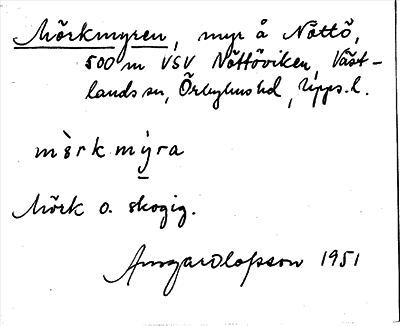 Mörkmyren, myr å Nöttö,
500 m VSV Nöttöviken, Väst-
lands sn, Örbyhus hd, Upps. l.
mèrkmýra
Mörk o. skogig.
Ansgar Olofsson 1951